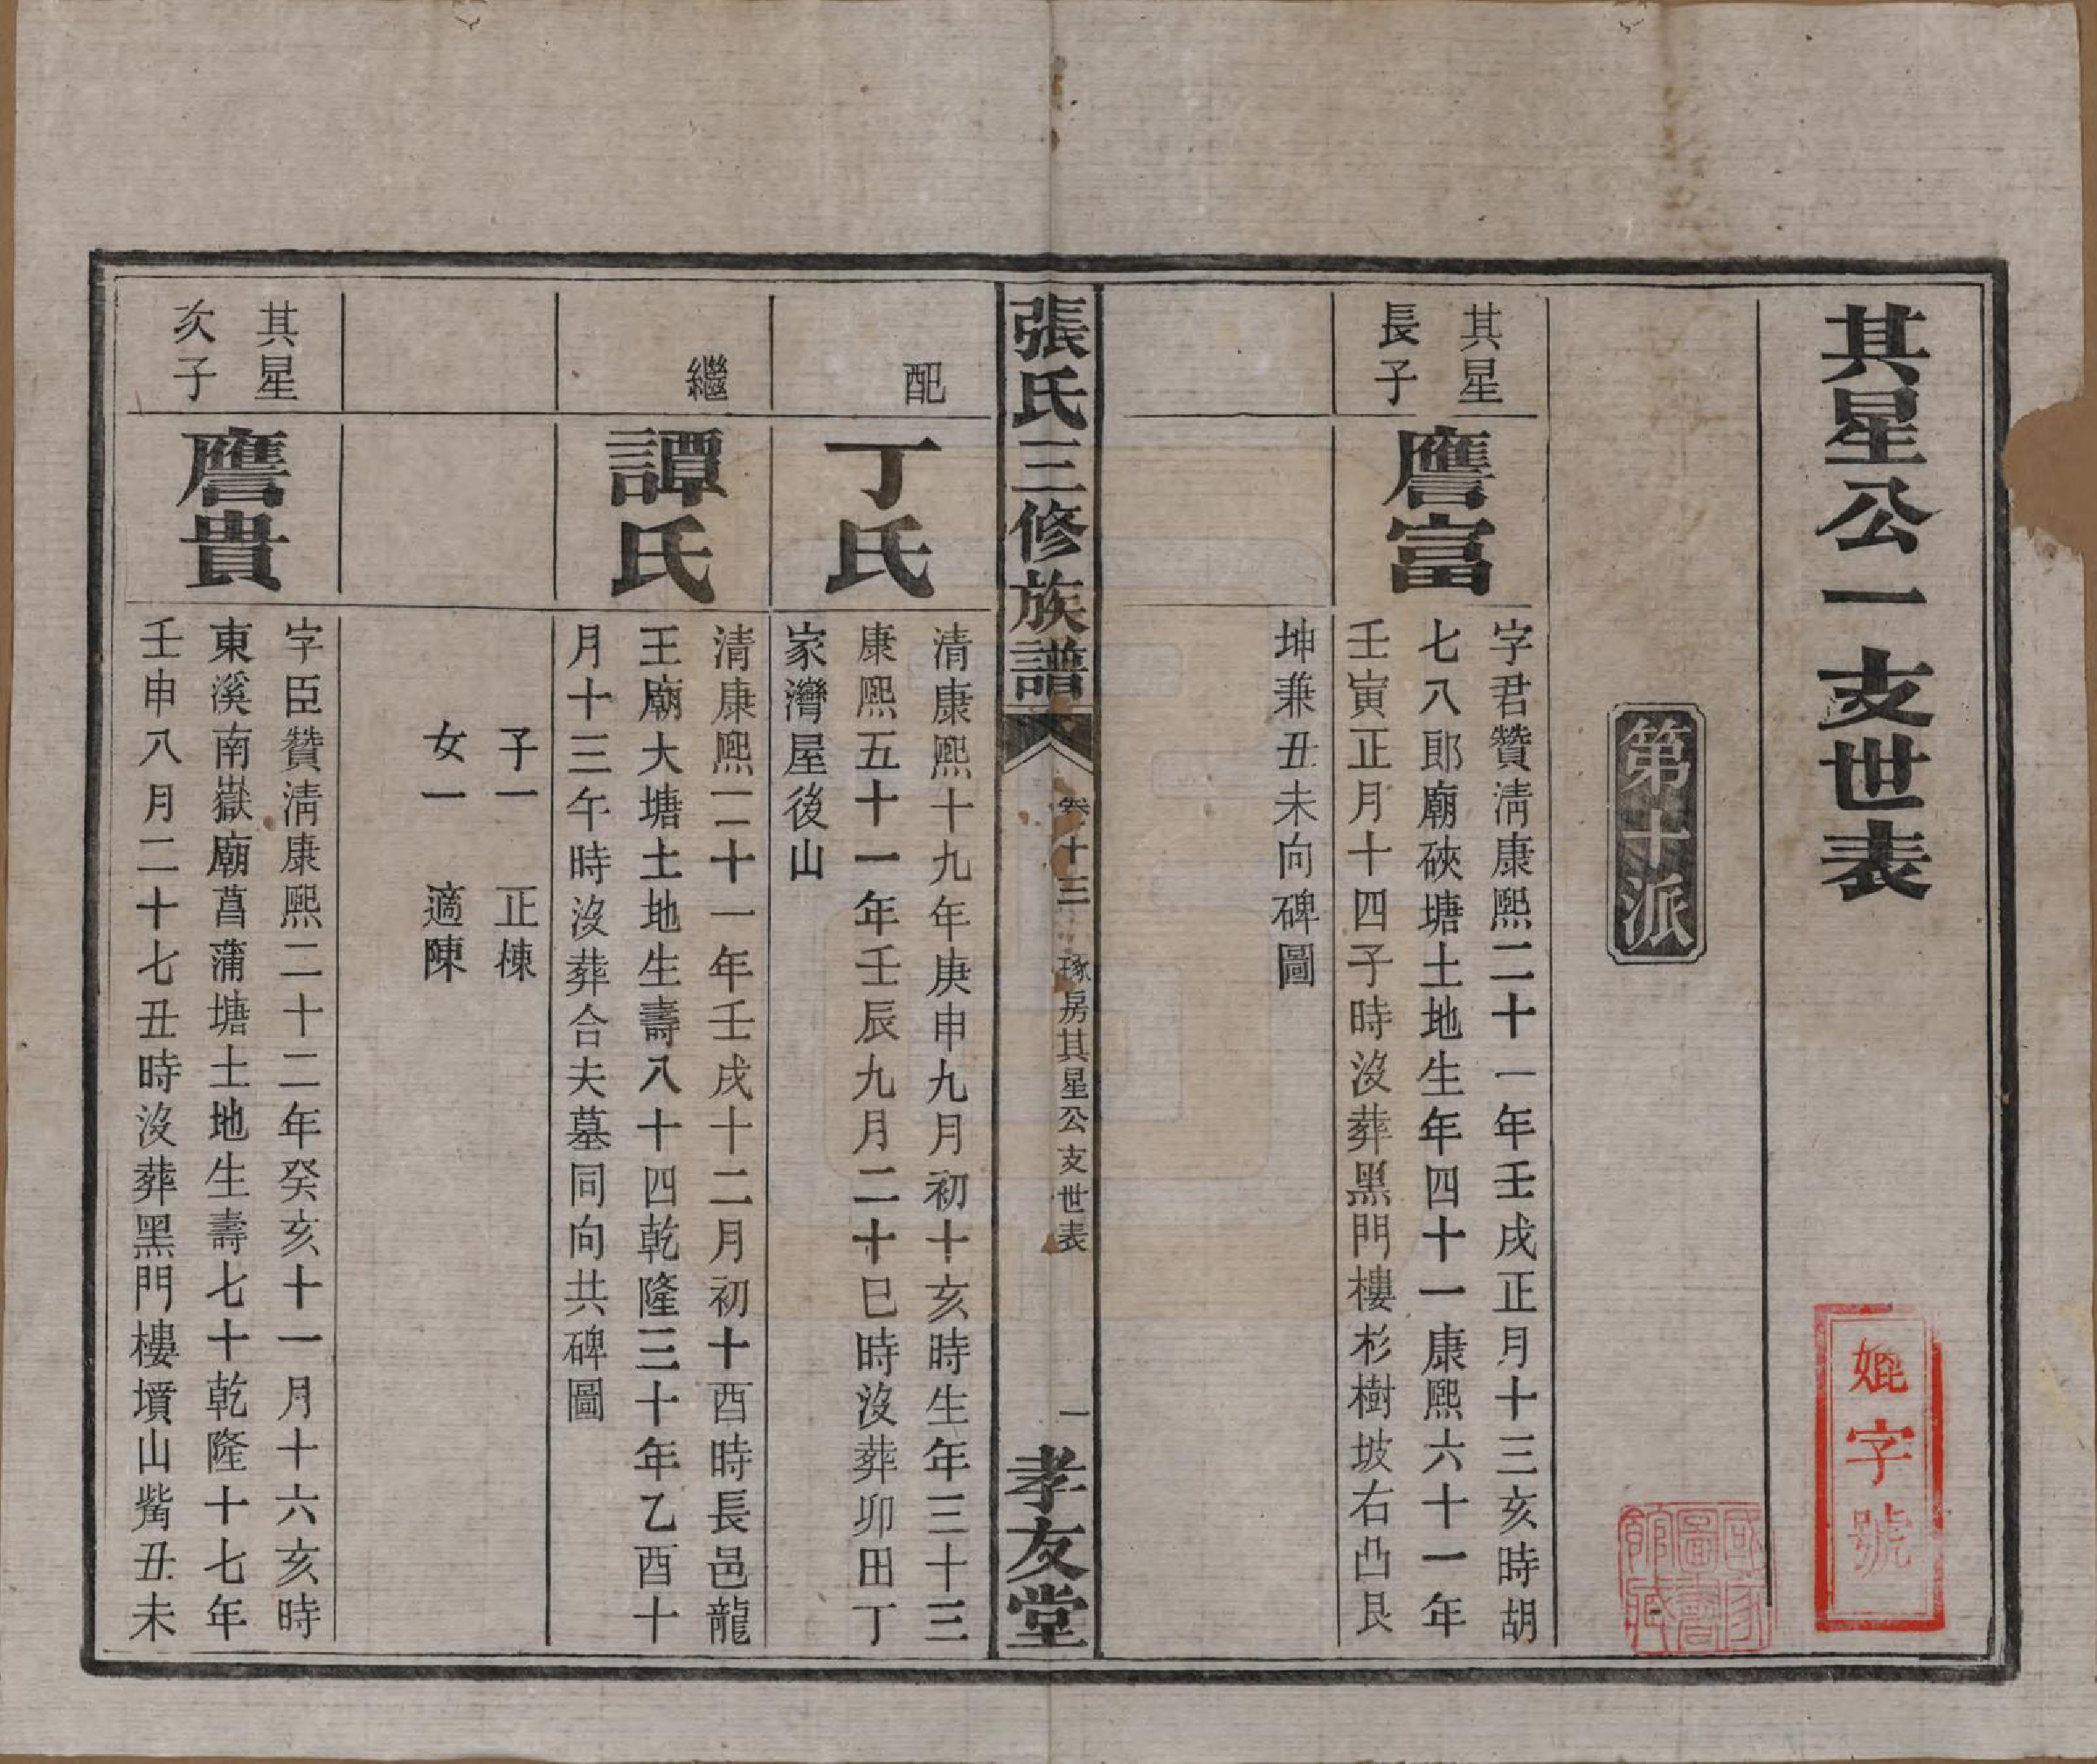 其星公一支世表
媲字號
國家圖書館藏
第十派
其星
長子
譍富
字君贊清康熙二十一年壬戌正月十三亥時胡
七八郎廟硤塘土地生年四十一康熙六十一年
壬寅正月十四子時沒葬黑門樓杉樹坡右凸艮
坤兼丑未向碑圖
張氏三修族譜
卷十三
琢房其星公支世表
一
孝友堂
配
丁氏
清康熙十九年庚申九月初十亥時生年三十三
康熙五十一年壬辰九月二十巳時沒葬卯田丁
家灣屋後山
繼
譚氏
清康熙二十一年壬戌十二月初十酉時長邑龍
王廟大塘土地生壽八十四乾隆三十年乙酉十
月十三午時沒葬合夫墓同向共碑圖
子一 正棟
女一 適陳
其星
次子
譍貴
字臣贊清康熙二十二年癸亥十一月十六亥時
東溪南嶽廟菖蒲塘土地生壽七十乾隆十七年
壬申八月二十七丑時沒葬黑門樓墳山嘴丑未